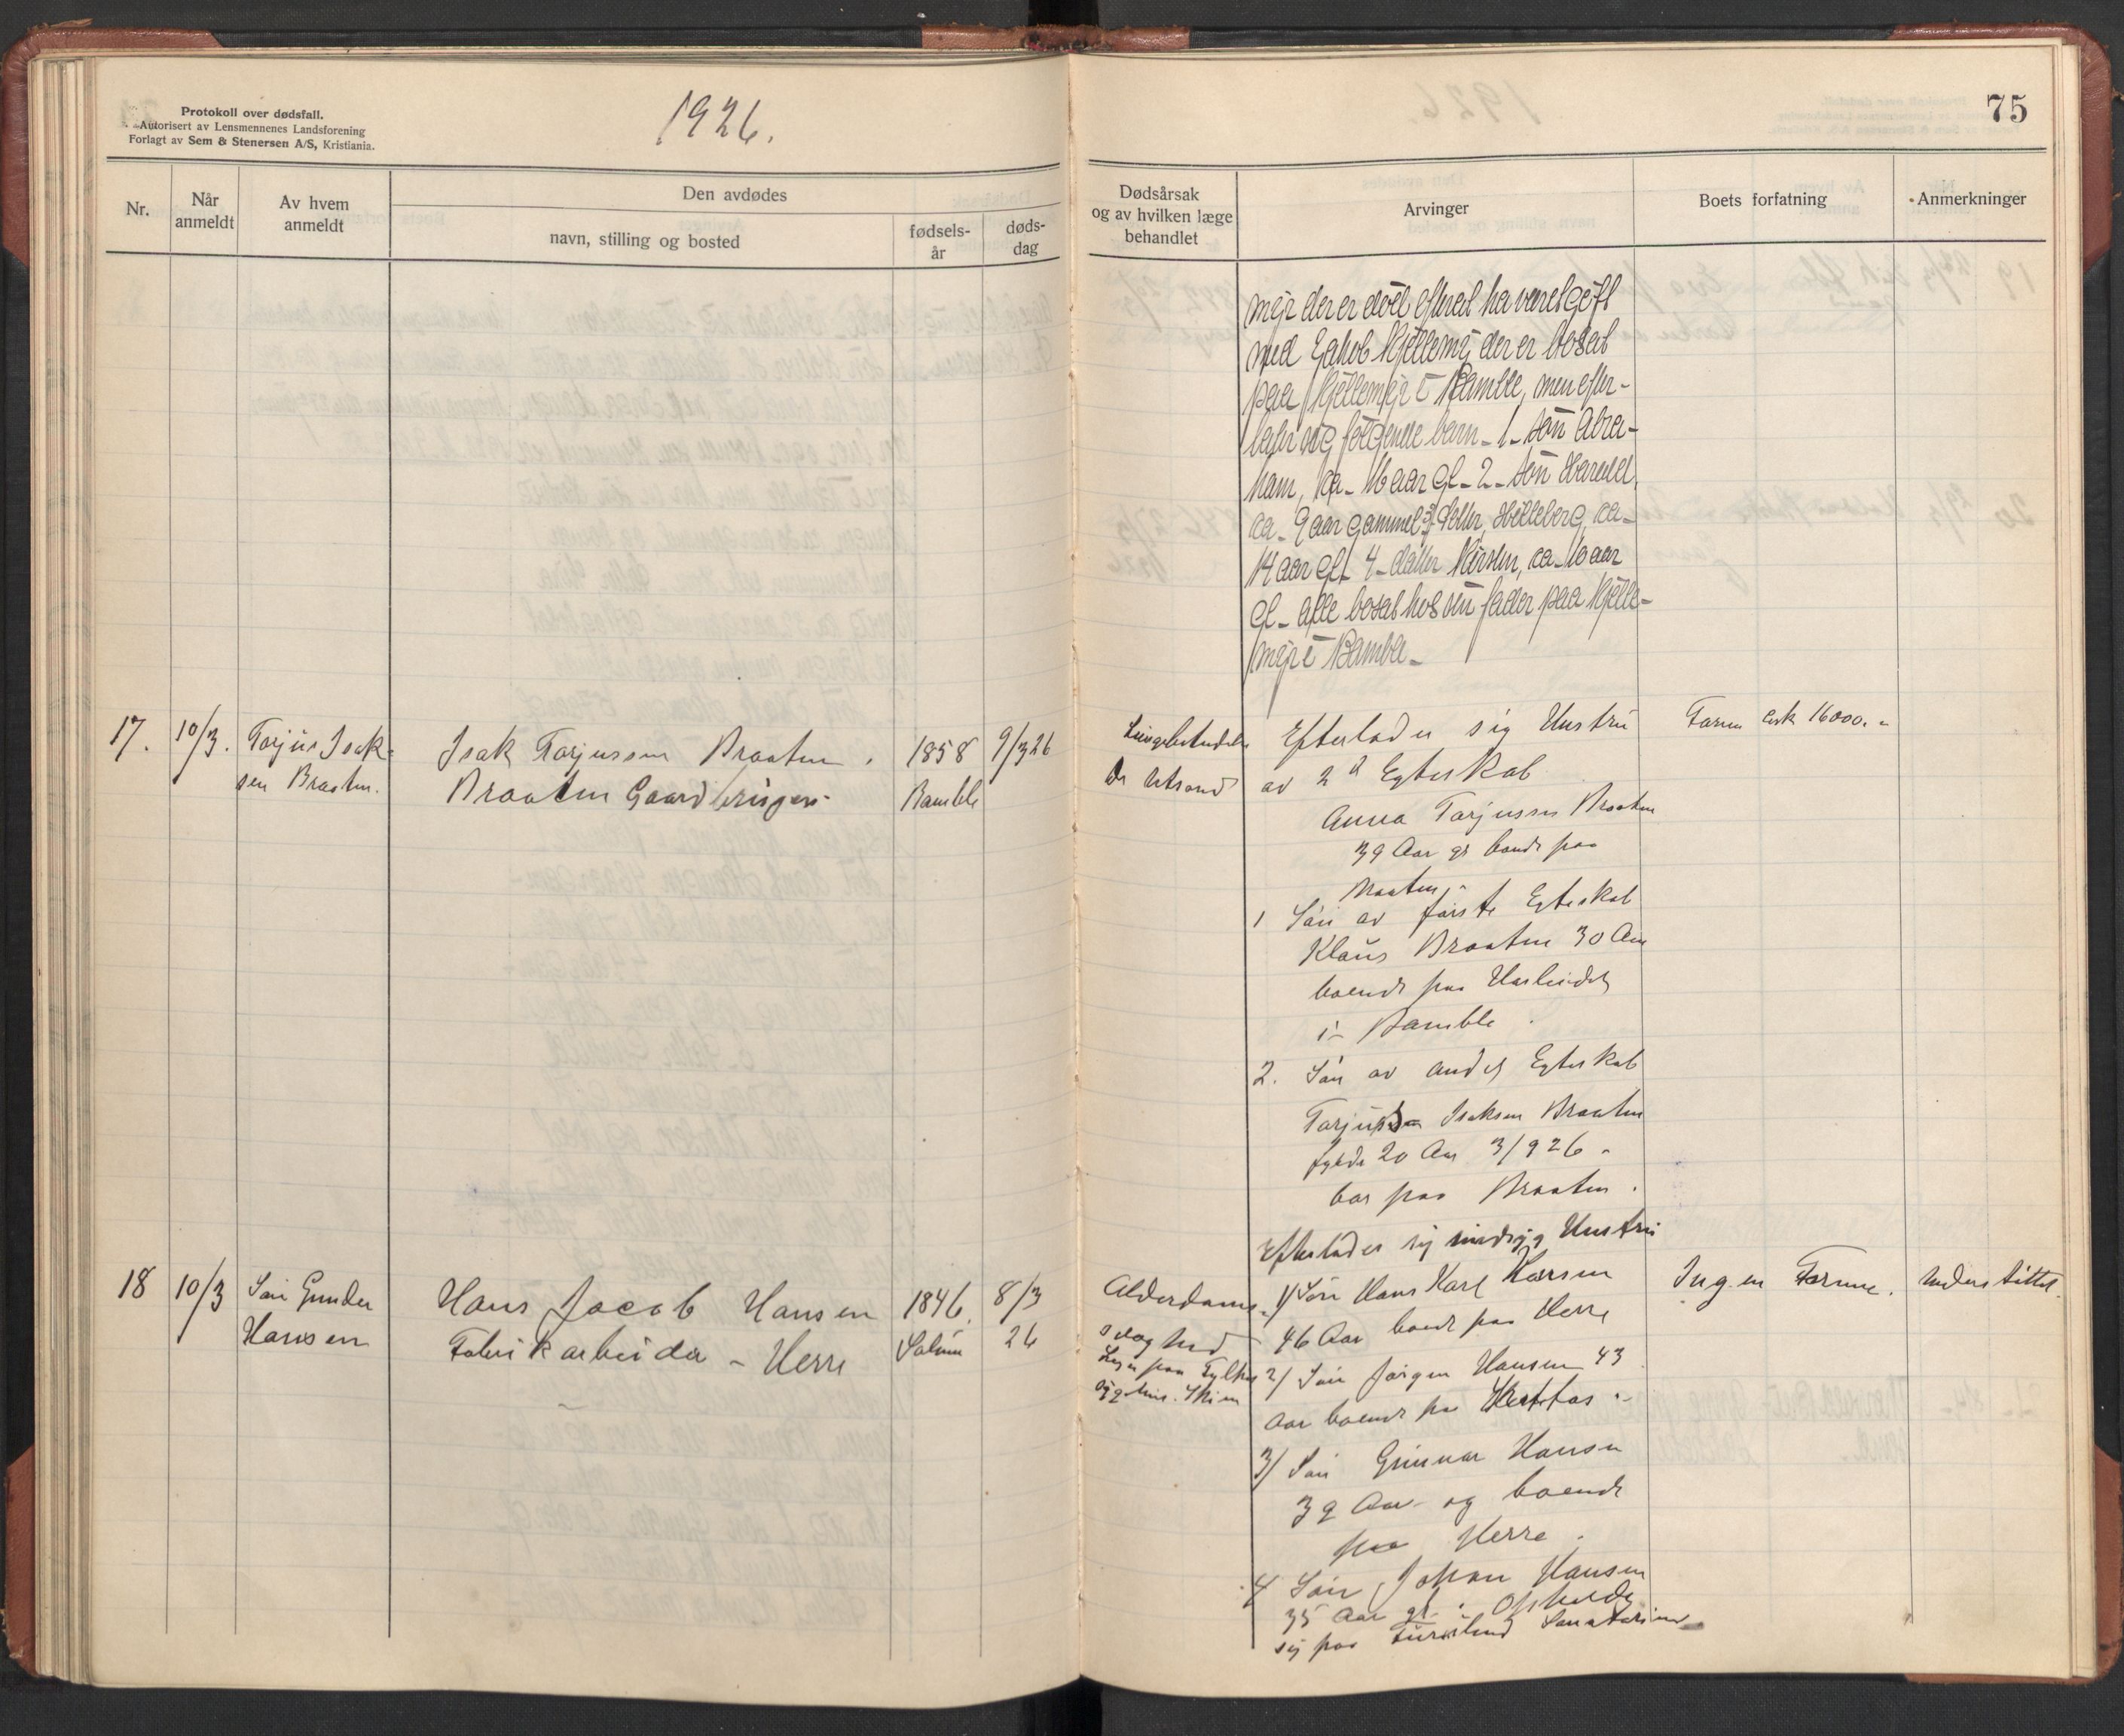 Protokoll over dødsfall.
Autorisert av Lensmennenes Landsforening
Forlagt av Sem & Stenersen A/S, Kristiania.
1926.
75
Nr.
Når anmeldt
Av hvem anmeldt
Den avdødes
navn, stilling og bosted
fødsels-år
døds-dag
Dødsårsak og av hvilken læge behandlet
Arvinger
Boets forfatning
Anmerkninger
mejr der er död efterat ha været gift
med Jakob Kjellemejr der er bosat
paa Kjellemejr i Bamble, men efter-
later sig fölgende barn - 1 - sön Abra-
ham, ca - 16 aar gl - 2 - sön Harald
ca - 9 aar gammel 3 datter, Hilleberg, ca -
14 aar gl - 4 - datter Kirsten, ca - 10 aar
gl - alle bosat hos sin fader paa Kjelle-
mejr i Bamble -
17.
10/3.
Torjus Isak-
sen Braaten.
Isak Torjussen Braaten.
Braaten Gaardbruger.
1858
Bamble
9/3 26
Lungebetændelse
Dr Utrand
Efterlader sig Hustru
av 2d Egteskab
Anna Torjussen Braaten
39 Aar gl boende paa
Braaten.
1 Sön av förste Egteskab
Klaus Braaten 30 Aar
boende paa
i Bamble.
2. Sön av andet Egteskab
Torjus Isaksen Braaten
fylde 20 Aar 3/1926.
bor paa Braaten.
Formue cirk 16000.-
18
10/3
Sön Gunder
Hansen
Hans Jacob Hansen
Fabrikarbeider - Herre
1846.
Solum
8/3
26
Alderdoms-
svaghed
Læge paa Fylkes
sygehus. Skien
Efterlader sig Hustru
1/ Sön Hans Karl Hansen
46 Aar boende paa Herre
2/ Sön Jörgen Hansen 43
Aar boende paa
3/ Sön Gunnar Hansen
39 Aar og boende
paa Herre.
4 Sön Johan Hansen
35 Aar gl. Opholder
sig paa Sanatorium
Ingen Formue.
Understöttet.